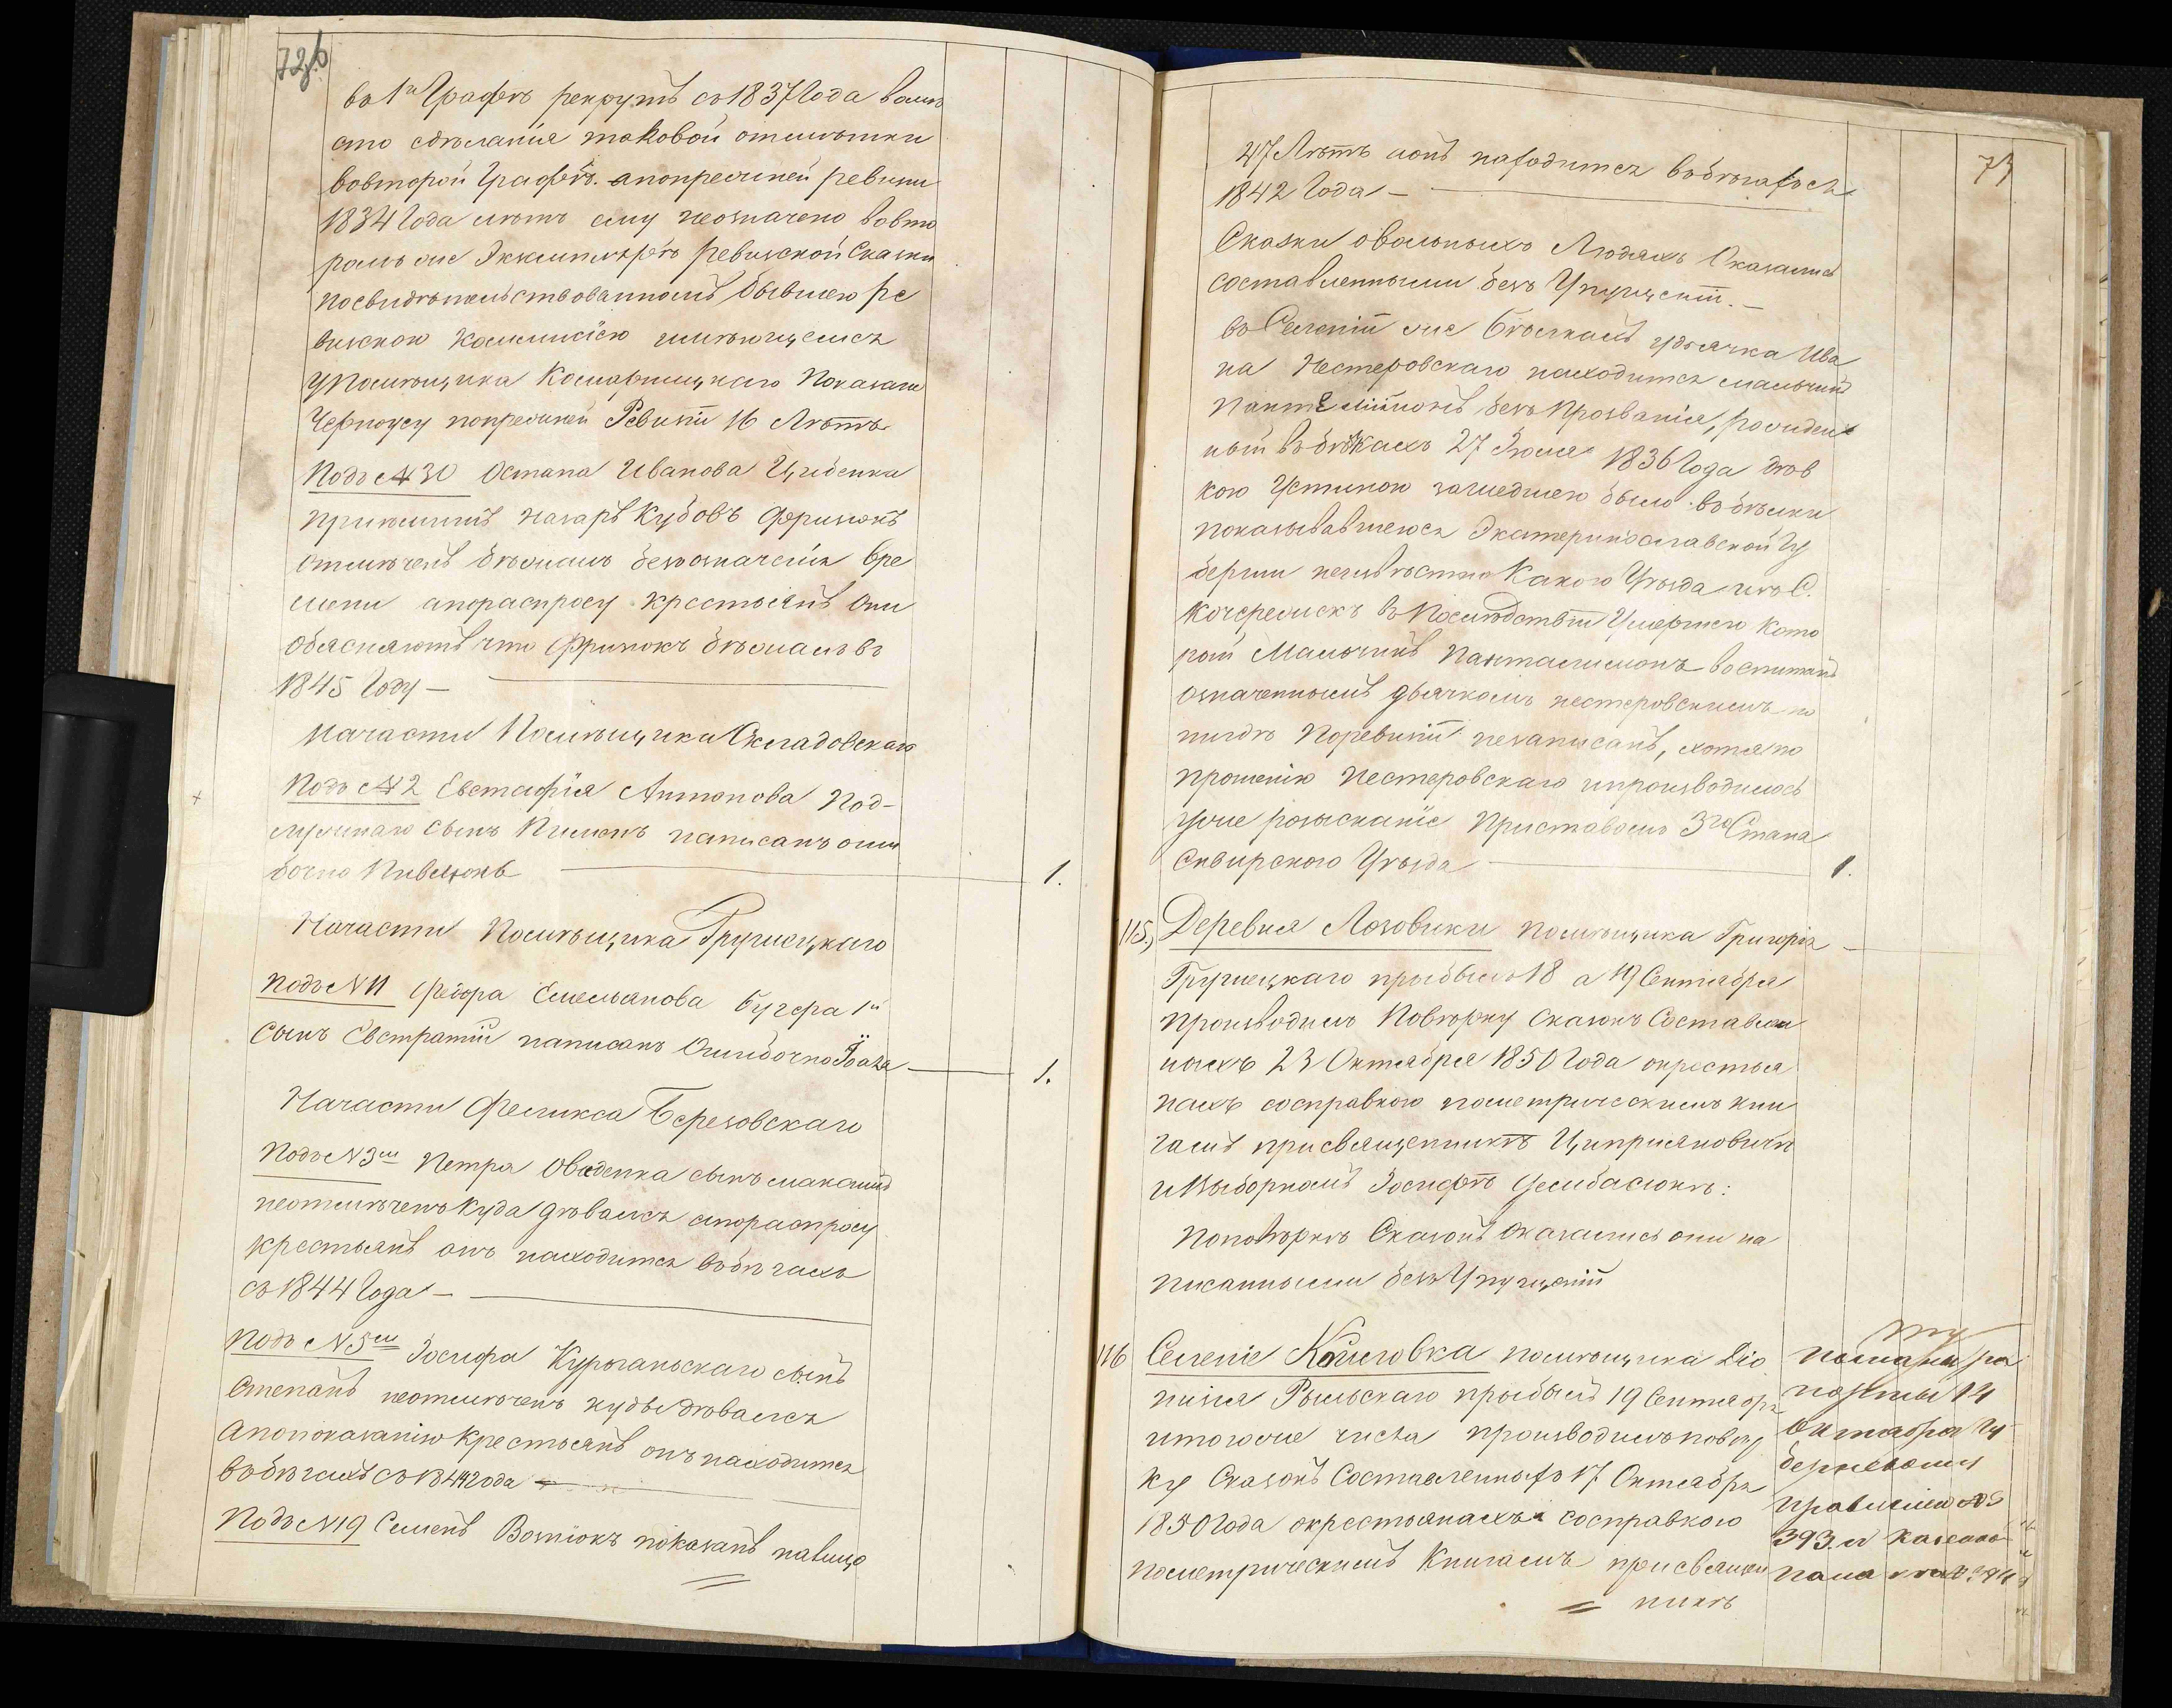 72об
въ 1й Графѣ рекрутъ съ 1837 Года вмѣ
сто сдѣланія таковой отмѣтки
вовторой Графѣ. апопрежней ревизіи
1834 Года лѣтъ ему неозначено вовто
ромъ же Экземплярѣ ревизской Сказки
посвидѣтельствованномъ бывшею Ре
визскою Коммисіею имѣющемся
уПомѣщика Комарницкаго Показано
Черноусу попрежней Ревизіи 16 Лѣтъ
Подъ № 30 Остапа Иванова Цибенка
пріимышъ Назаръ Кубовъ Фризюкъ
отмѣченъ бѣжалъ безозначенія вре
мени апораспросу крестьянъ Они
обясняютъ что Фризюкъ бѣжалъ въ
1845 Году —
Начасти Помѣщика Складовскаго
Подъ № 2 Евстафія Антонова Под-
лужнаго сынъ Пименъ написанъ оши
бочно Пивлюкъ 1.
Начасти Помѣщика Гружецкаго
подъ № 11 Федора Емельянова Бугера 1й
сынъ Евстратій написанъ Ошибочно 1.
Начасти Феликса Березовскаго
Подъ № 3м Петра Овиденка сынъ
неотмѣченъ куда дѣвался апораспросу
крестьянъ онъ находится въбѣгахъ
съ 1844 Года —
Подъ № 5м Іосифа Курганьскаго сынъ
Степанъ неотмѣченъ куды дѣвался
Апопоказанію Крестьянъ онъ находится
въбѣгахъ съ 1844 Года
Подъ № 19 Семенъ Вознюкъ показанъ налицо
73
47 Лѣтъ нонъ находится въбѣгахъ съ
1842 Года —
Сказки овольныхъ Людяхъ Оказались
составленными безъ Упущеній. —
въ Селеніи же Бѣлкахъ удьячка Ива
на Нестеровскаго находится мальчикъ
Пантелиймонъ безъ Прозванія, рожден
ный въбѣгахъ 27 Іюля 1836 Года дѣв
кою Устиною зашедшею было въбѣлки
показывавшеюся Экатеринославской Гу
берніи неизвѣстно Какого Уѣзда изъ С.
Кочережскъ въ Послѣдствіи Умершею Кото
рый Мальчикъ Пантелимонъ воспитанъ
означеннымъ дьячкомъ нестеровскимъ но
нигдѣ Поревизіи незаписанъ, хотя по
прошенію Нестеровскаго ипроизводилось
уже розысканіе Приставомъ 3го Стана
Сквирского Уѣзда 1.
115., Деревня Лозовики помѣщика Григорія
Гружецкаго прибылъ 18 а 19 Сентября
Производилъ Повѣрку Сказокъ Составлен
ныхъ 23 Октября 1850 Года окрестья
нахъ сосправкою пометрическимъ кни
гамъ присвященникѣ Циприяновичѣ
иВыборномъ Іосифѣ
Поповѣркѣ Сказокъ Оказались они на
писанными безъ Упущеній
116 Селеніе Кошовка помѣщика Діо
низія Рыльскаго прибылъ 19 Сентября
итогоже числа производилъ повѣр
ку Сказокъ Составленныхъ 17 Октября
1850 Года окрестьянахъ сосправкою
пометрическимъ Книгамъ присвящен
никѣ
14
октября Гу
бернскому
правленію №
393. и Казенной